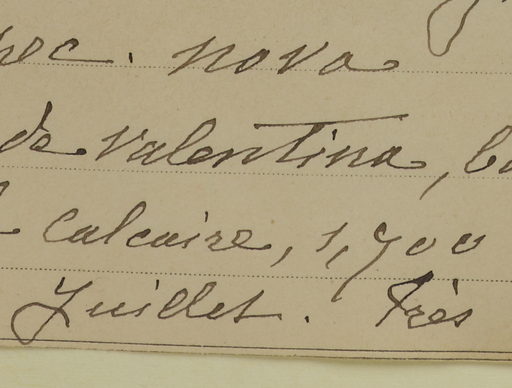 spec. nova
de Valentina,
calcaire, 1,900
Juillet. Très